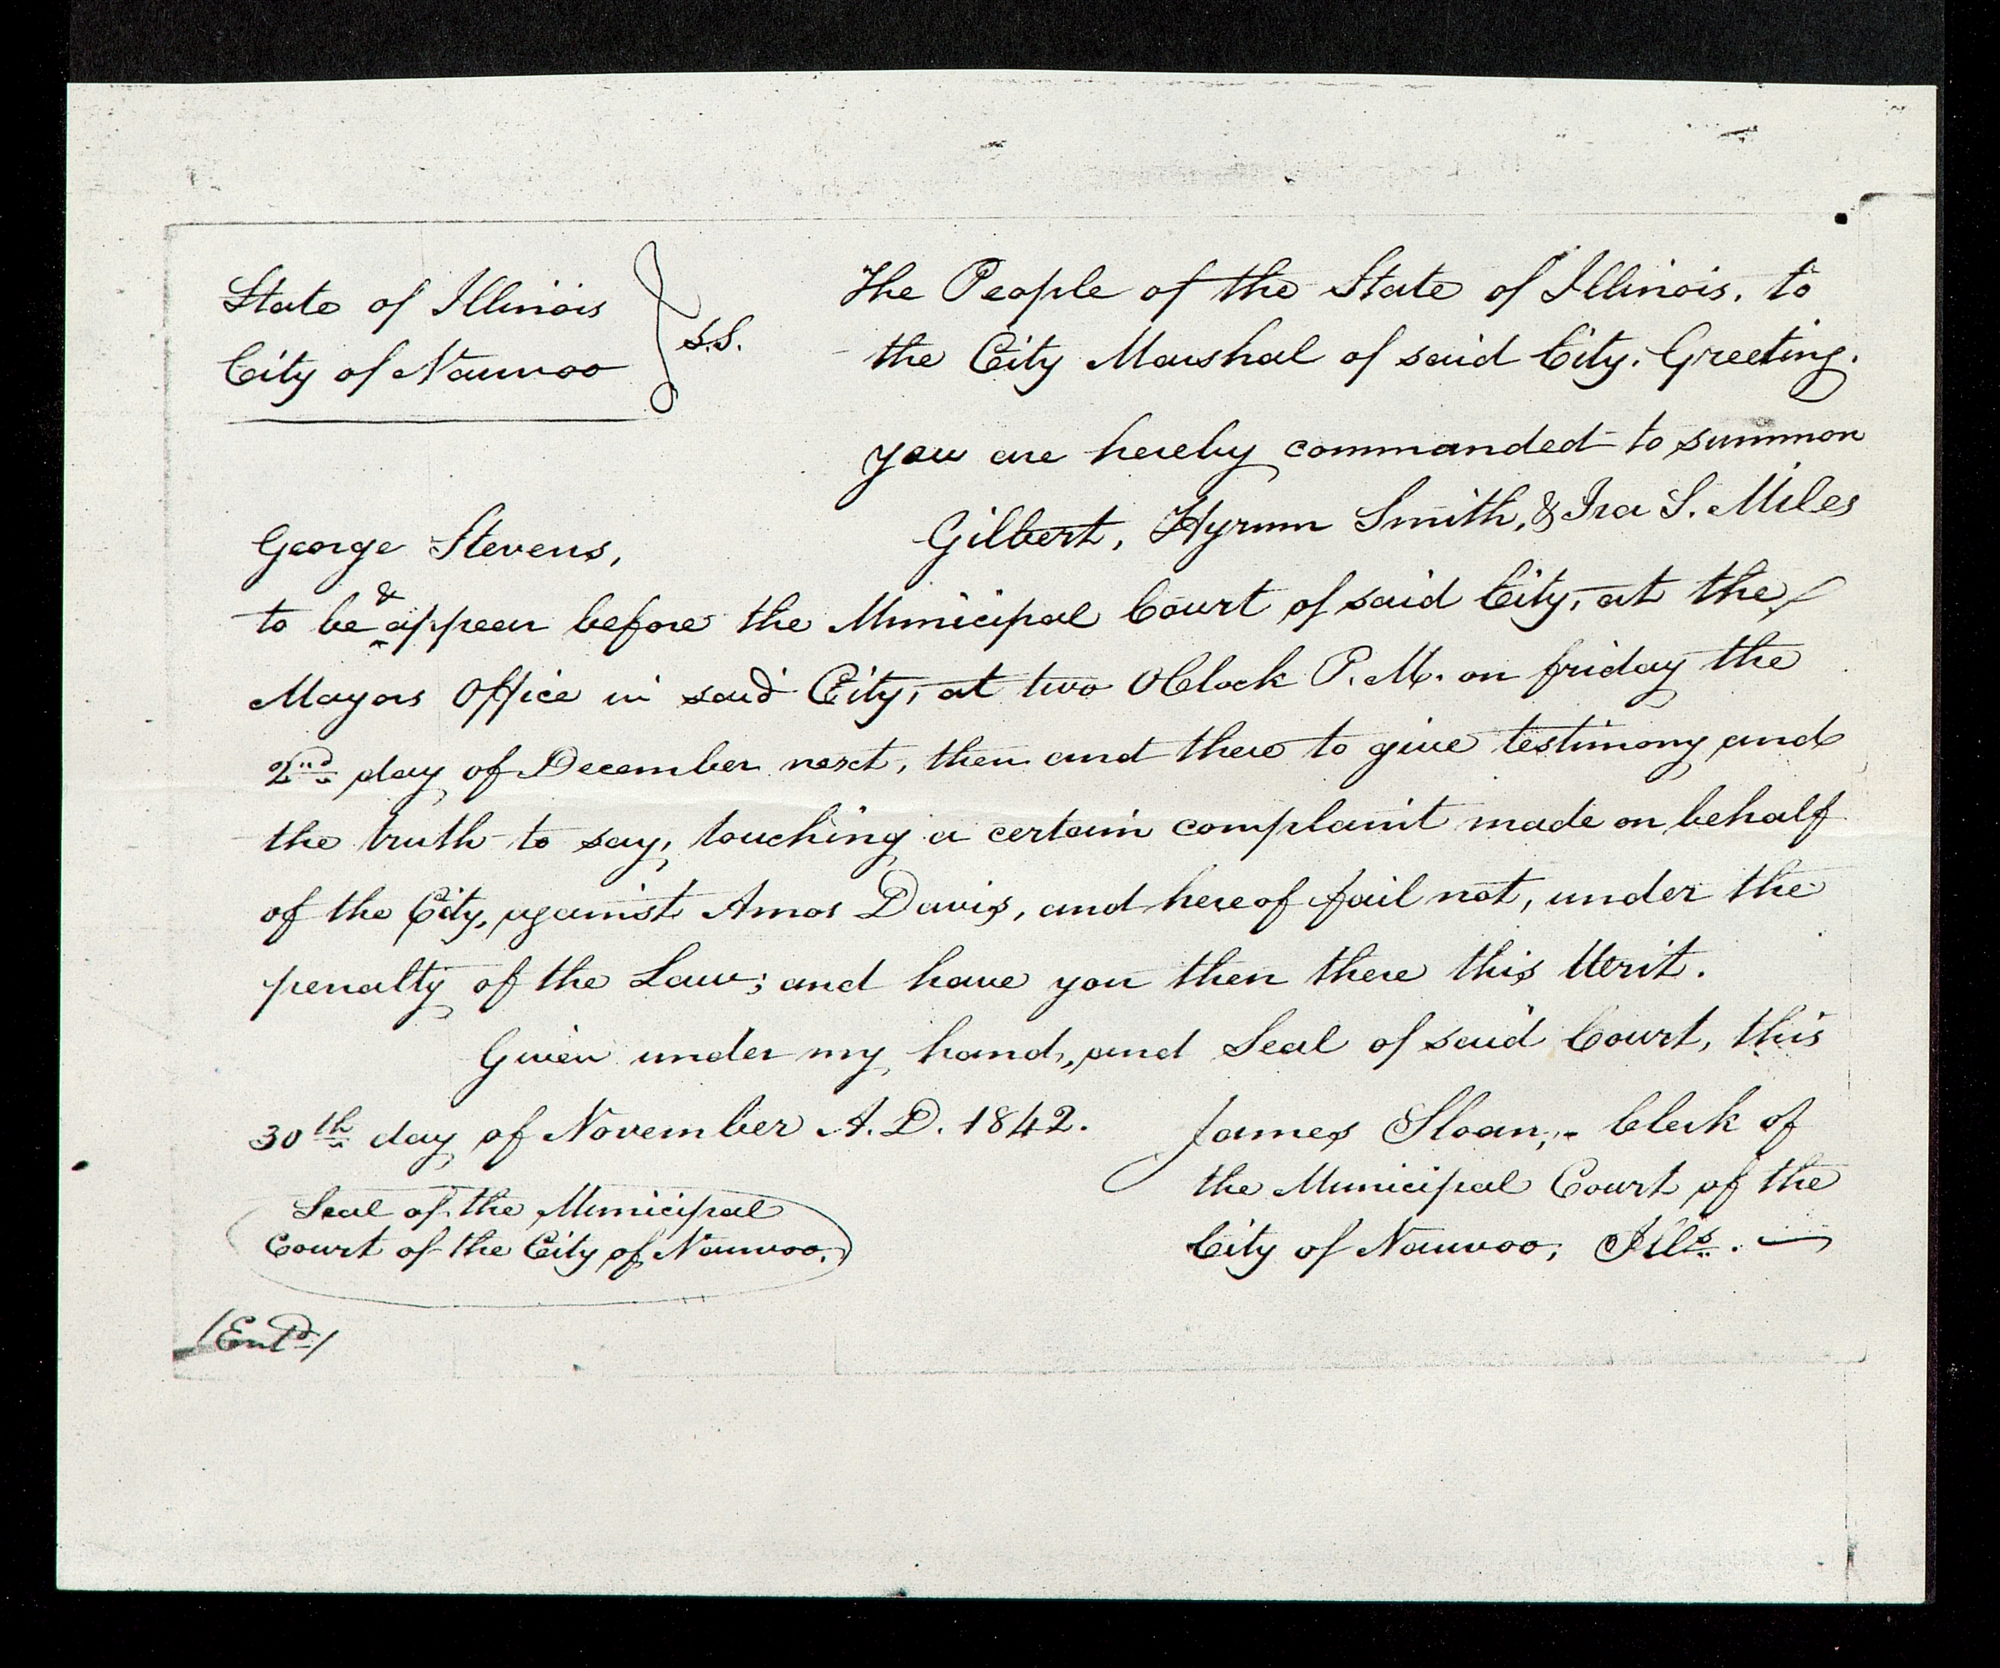 State of Illinois
City of Nauvoo
S.S.
The People of the State of Illinois, to
the City Marshal of said City, Greeting.
you are hereby commanded to summon
George Stevens, Gilbert, Hyrum Smith, & Ira S. Miles
to be & appear before the Municipal Court of said City, at the
Mayors Office in said City, at two OClock P.M. on friday the
2nd day of December next, then and there to give testimony and
the truth to say, touching a certain complaint made on behalf
of the City, against Amos Davis, and hereof fail not, under the
penalty of the Law; and have you then there this Writ.
Given under my hand, and Seal of said Court, this
30th day of November A.D. 1842.
James Sloan, Clerk of
the Municipal Court of the
City of Nauvoo, Ills.
Seal of the Municipal
Court of the City of Nauvoo.
/Entd/